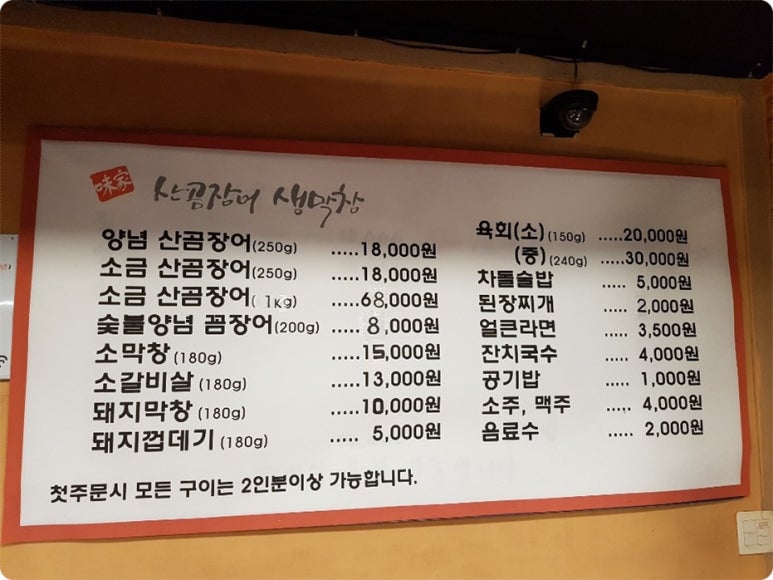 味家 산곰장어 생막창
양념 산곰장어(250g) .....18,000원
소금 산곰장어(250g) .....18,000원
소금 산곰장어( 1kg) .....68,000원
숯불양념 꼼장어(200g) ..... 8,000원
소막창(180g) .....15,000원
소갈비살(180g) .....13,000원
돼지막창(180g) .....10,000원
돼지껍데기(180g) ..... 5,000원
육회(소)(150g) .....20,000원
(중)(240g) .....30,000원
차돌술밥 ..... 5,000원
된장찌개 ..... 2,000원
얼큰라면 ..... 3,500원
잔치국수 ..... 4,000원
공기밥 ..... 1,000원
소주, 맥주 ..... 4,000원
음료수 ..... 2,000원
첫주문시 모든 구이는 2인분이상 가능합니다.